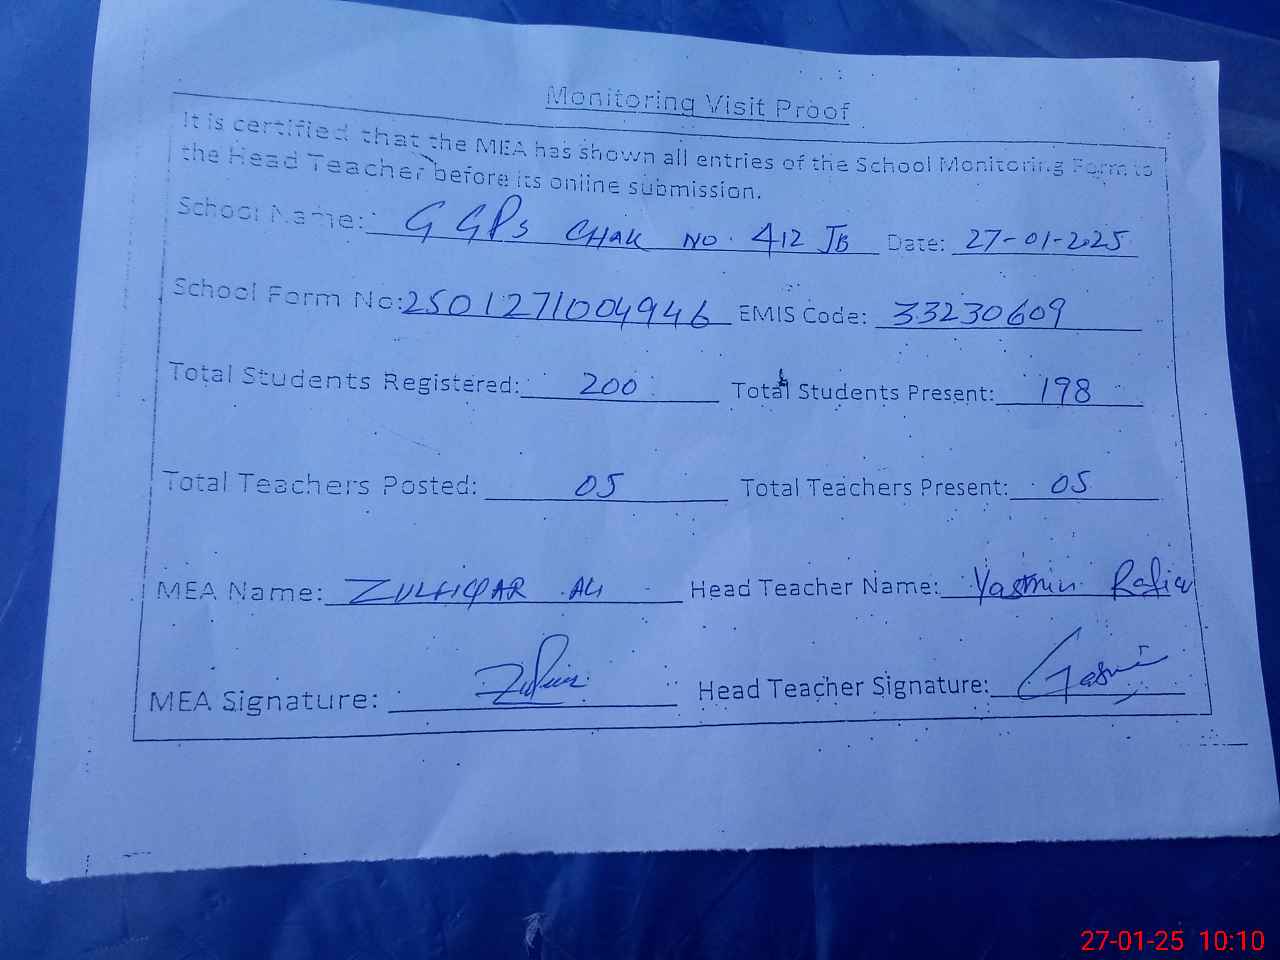 Monitoring Visit Proof
It is certified that the MEA has shown all entries of the School Monitoring Form to
the Head Teacher before its online submission.
School Name: G GPS CHAK NO. 412 JB Date: 27-01-2025
School Form No: 2501271004946 EMIS Code: 33230609
Total Students Registered: 200 Total Students Present: 198
Total Teachers Posted: 05 Total Teachers Present: 05
MEA Name: ZULFIQAR ALI Head Teacher Name: Yasmin Rafiq
MEA Signature: Head Teacher Signature:
27-01-25 10:10